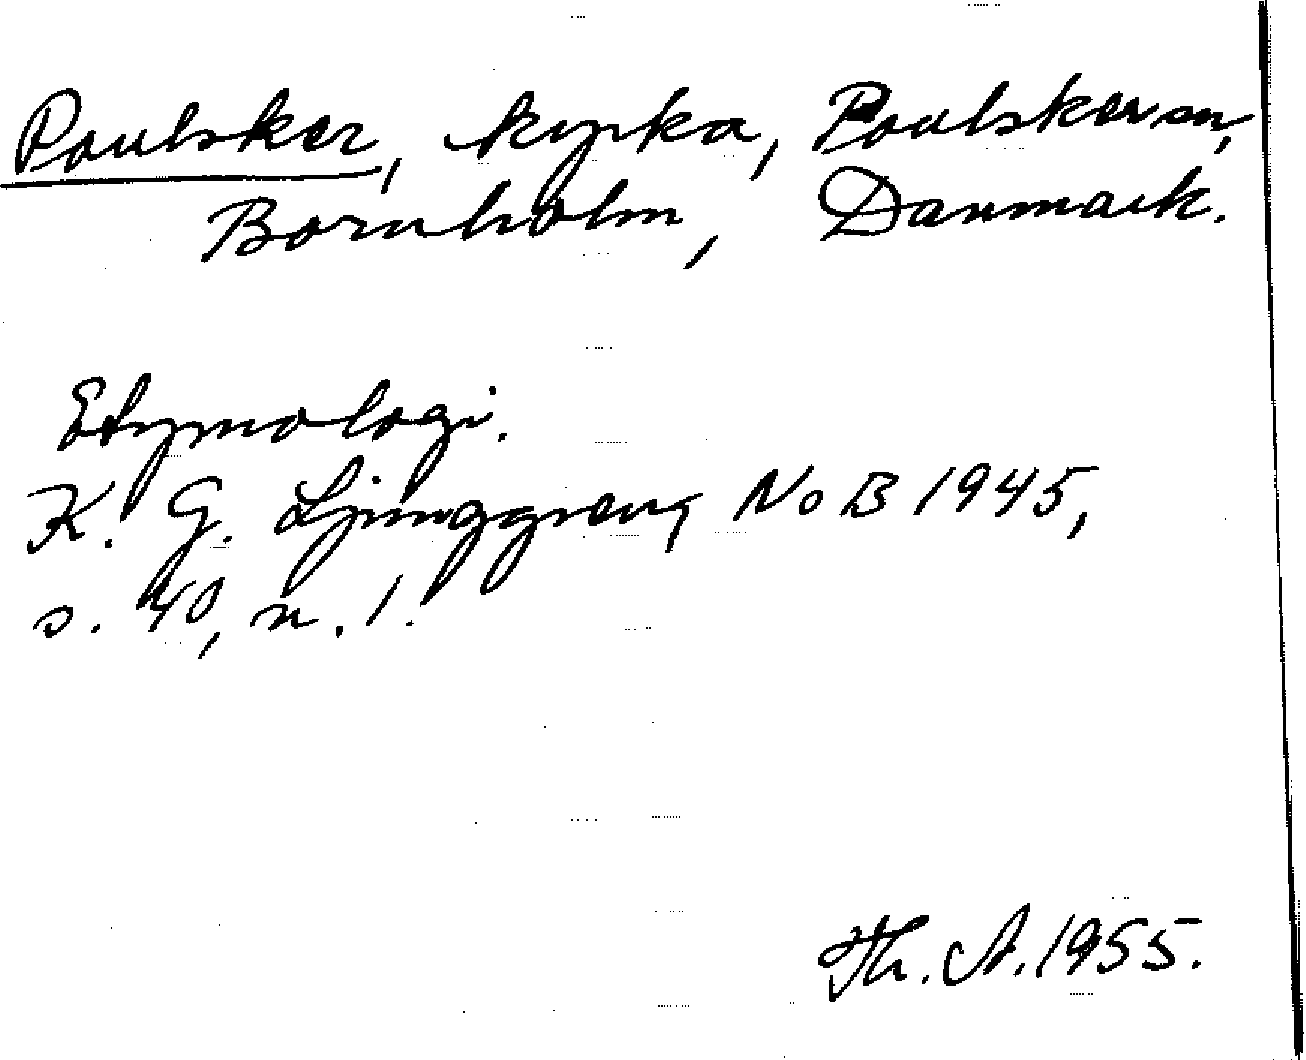 Poulsker, kyrka, Poulsker sn,
Bornholm, Danmark.
Etymologi.
K. G. Ljunggren, NoB 1945,
s. 40, n. 1.
Th. A. 1955.